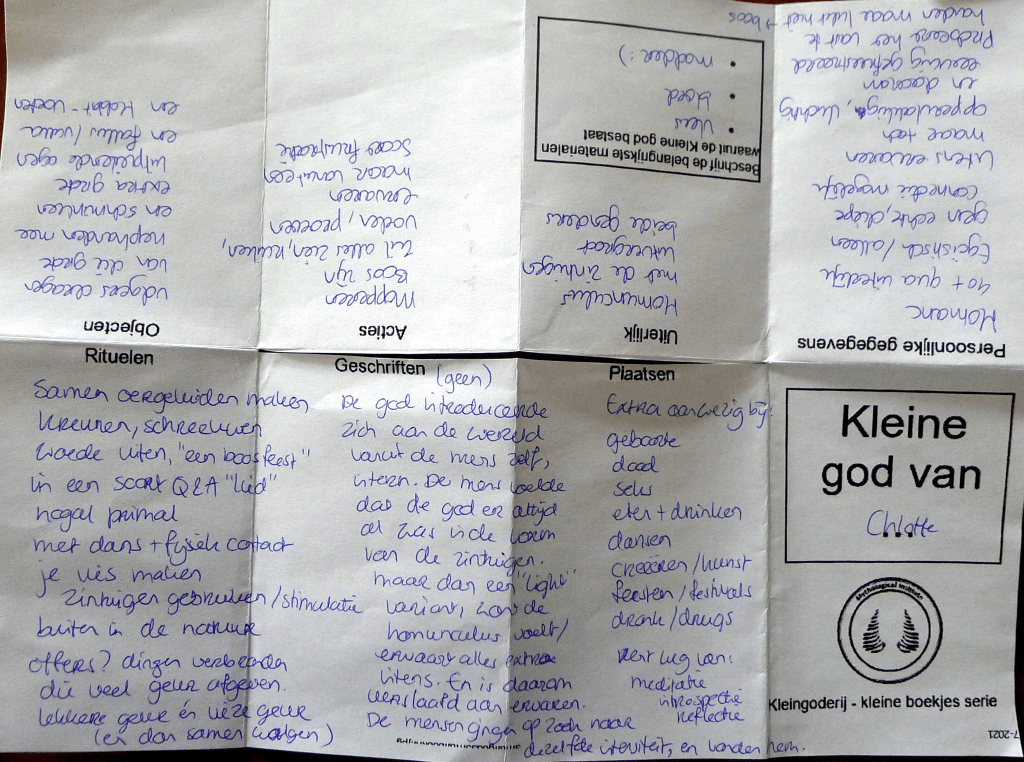 Rituelen
Samen oergeluiden maken
kreunen, schreeuwen
woede uiten, "een boos feest"
in een soort Q&A "lied"
nogal primal
met dans + fysiek contact
je vies maken
zintuigen gebruiken/stimulatie
buiten in de natuur
offers? dingen verbranden
die veel geur afgeven.
lekkere geur én vieze geur
(en dan samen walgen)
Geschriften (geen)
De god introduceerde
zich aan de wereld
vanuit de mens zelf,
intern. De mens voelde
dat de god er altijd
al was in de vorm
van de zintuigen.
maar dan een "light"
variant, want de
homunculus voelt/
ervaart alles extra
intens. En is daarom
verslaafd aan ervaren.
De mensen gingen op zoek naar
dezelfde intensiteit, en vonden hem.
Plaatsen
Extra aanwezig bij:
geboorte
dood
seks
eten + drinken
dansen
creëren/kunst
feesten/festivals
drank/drugs
Ver weg van:
meditatie
introspectie
reflectie
Kleine
god van
Chlotte
...
Mythological Institute
Kleingoderij - kleine boekjes serie
7-2021
Persoonlijke gegevens
Homanc
40+ qua uiterlijk
Egoïstisch/alleen
geen echte, diepe
connectie mogelijk
Intens ervaren
maar toch
oppervlakkig, vluchtig
en daarom
eeuwig gefrustreerd
Proberen het vast te
houden maar lukt niet → boos
Uiterlijk
Homunculus
met de zintuigen
uitvergroot
beide genders
Beschrijf de belangrijkste materialen
waaruit de Kleine god bestaat
• vlees
• bloed
• modder :)
Acties
Mopperen
Boos zijn
Wil alles zien, ruiken,
voelen, proeven
ervaren
maar vanuit een
soort frustratie
Objecten
volgers dragen
van die grote
nephanden mee
en schminken
extra grote
uitpuilende ogen
en fallus/vulva
en Hobbit-voeten